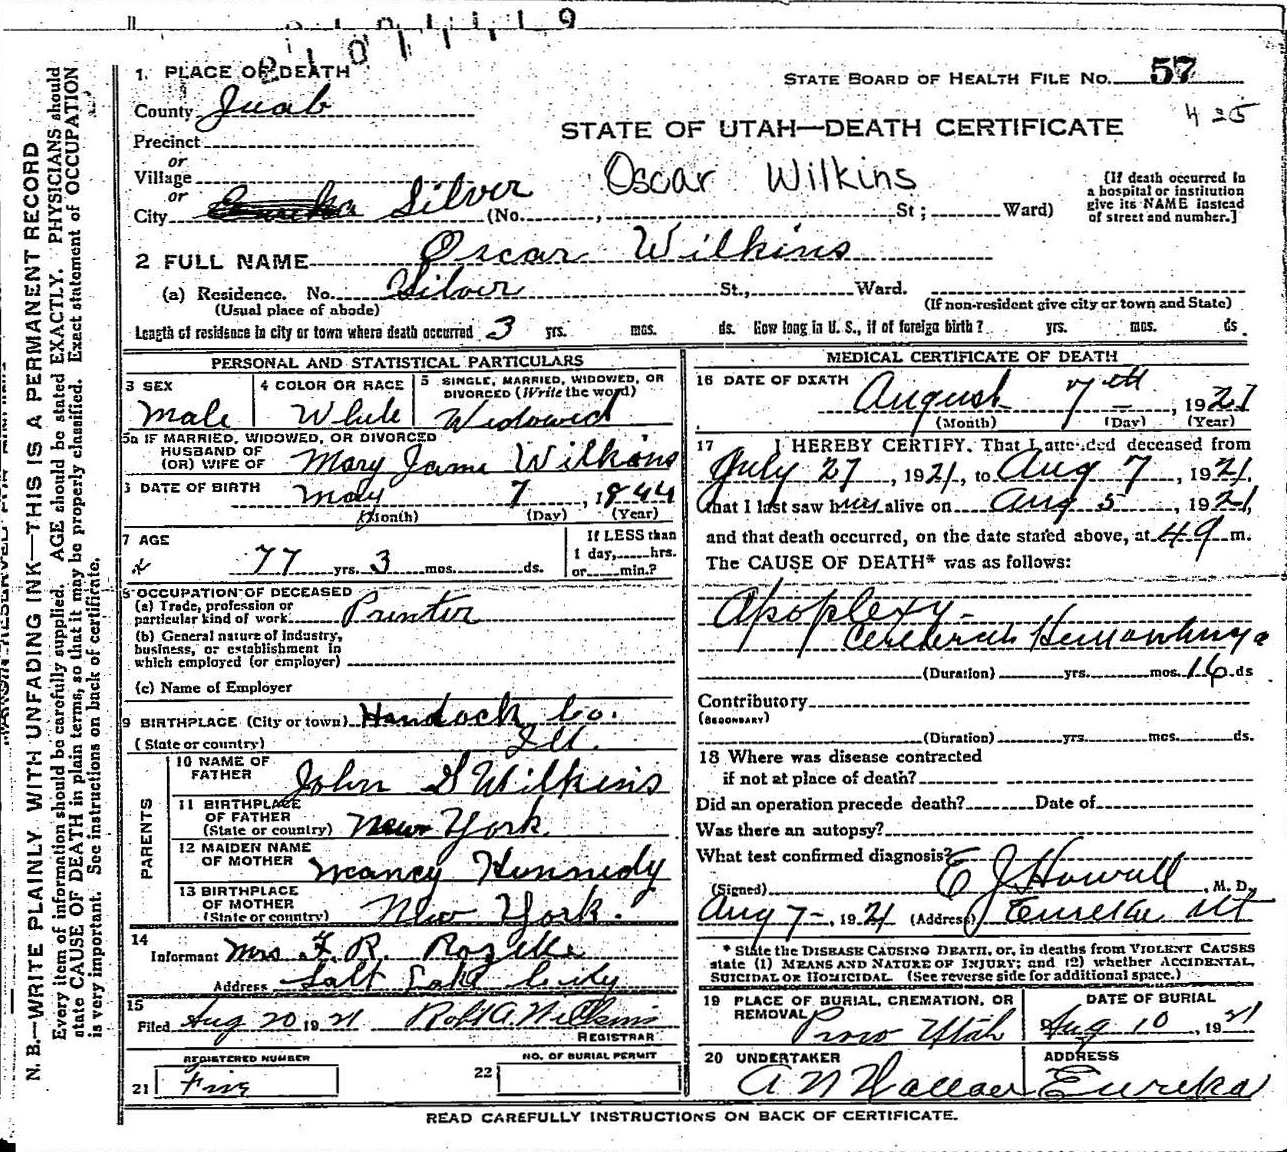 1. PLACE OF DEATH
STATE BOARD OF HEALTH FILE No. 57
County Juab
425
STATE OF UTAH—DEATH CERTIFICATE
Precinct
or
Village
Oscar Wilkins
or
City Eureka Silver (No. , St; Ward)
[If death occurred in
a hospital or institution
give its NAME instead
of street and number.]
2 FULL NAME Oscar Wilkins
(a) Residence. No. Silver St., Ward.
(Usual place of abode) (If non-resident give city or town and State)
Length of residence in city or town where death occurred 3 yrs. mos. ds. How long in U. S., if of foreign birth? yrs. mos. ds
PERSONAL AND STATISTICAL PARTICULARS
3 SEX
Male
4 COLOR OR RACE
White
5 SINGLE, MARRIED, WIDOWED, OR
DIVORCED (Write the word)
Widowed
5a IF MARRIED, WIDOWED, OR DIVORCED
HUSBAND OF
(OR) WIFE OF Mary Jane Wilkins
6 DATE OF BIRTH May 7, 1844
(Month) (Day) (Year)
7 AGE
77 yrs. 3 mos. ds.
If LESS than
1 day, hrs.
or min.?
8 OCCUPATION OF DECEASED
(a) Trade, profession or
particular kind of work Printer
(b) General nature of industry,
business, or establishment in
which employed (or employer)
(c) Name of Employer
9 BIRTHPLACE (City or town) Handock Co.
(State or country) Ill.
PARENTS
10 NAME OF
FATHER John G Wilkins
11 BIRTHPLACE
OF FATHER
(State or country) New York
12 MAIDEN NAME
OF MOTHER Nancy Kennedy
13 BIRTHPLACE
OF MOTHER
(State or country) New York.
14
Informant Mrs F. R. Rozelle
Address Salt Lake City
15
Filed Aug 20 1921 Robt A. Wilkins
REGISTRAR
REGISTERED NUMBER
21 Five
NO. OF BURIAL PERMIT
22
MEDICAL CERTIFICATE OF DEATH
16 DATE OF DEATH
August 7th, 1921
(Month) (Day) (Year)
17 I HEREBY CERTIFY, That I attended deceased from
July 27, 1921, to Aug 7, 1921,
that I last saw him alive on Aug 5, 1921,
and that death occurred, on the date stated above, at m.
The CAUSE OF DEATH* was as follows:
Apoplexy-
Cerebral Hemorrhage
(Duration) yrs. mos. 16 ds
Contributory
(SECONDARY)
(Duration) yrs. mos. ds.
18 Where was disease contracted
if not at place of death?
Did an operation precede death? Date of
Was there an autopsy?
What test confirmed diagnosis?
(Signed) E J Howell, M. D.
Aug 7-, 1921 (Address) Eureka Ut
* State the DISEASE CAUSING DEATH, or, in deaths from VIOLENT CAUSES
state (1) MEANS AND NATURE OF INJURY; and (2) whether ACCIDENTAL,
SUICIDAL or HOMICIDAL. (See reverse side for additional space.)
19 PLACE OF BURIAL, CREMATION, OR
REMOVAL Provo Utah
DATE OF BURIAL
Aug 10, 1921
20 UNDERTAKER
A N Wallace
ADDRESS
Eureka
READ CAREFULLY INSTRUCTIONS ON BACK OF CERTIFICATE.
N. B.—WRITE PLAINLY WITH UNFADING INK—THIS IS A PERMANENT RECORD
Every item of information should be carefully supplied. AGE should be stated EXACTLY. PHYSICIANS should
state CAUSE OF DEATH in plain terms, so that it may be properly classified. Exact statement of OCCUPATION
is very important. See instructions on back of certificate.